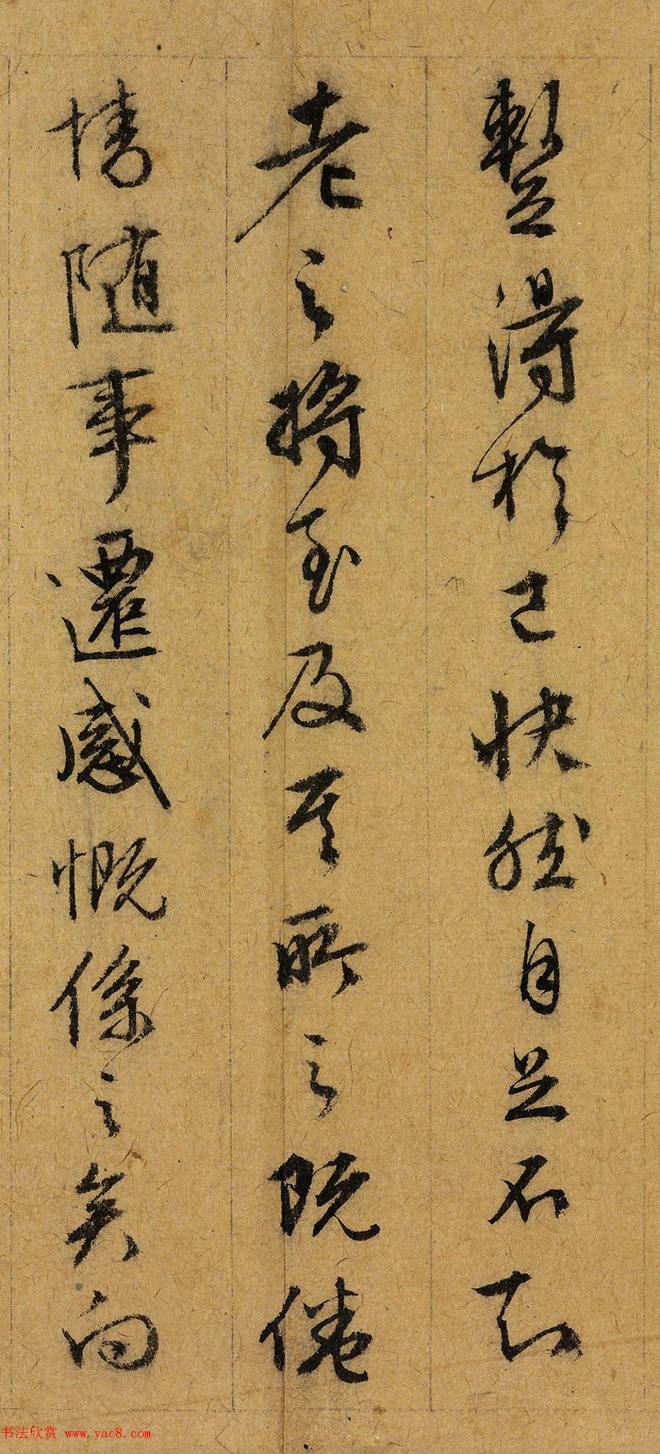 暫得於己快然自足不知
老之將至及其所之既倦
情隨事遷感慨係之矣向
书法欣赏 www.yac8.com